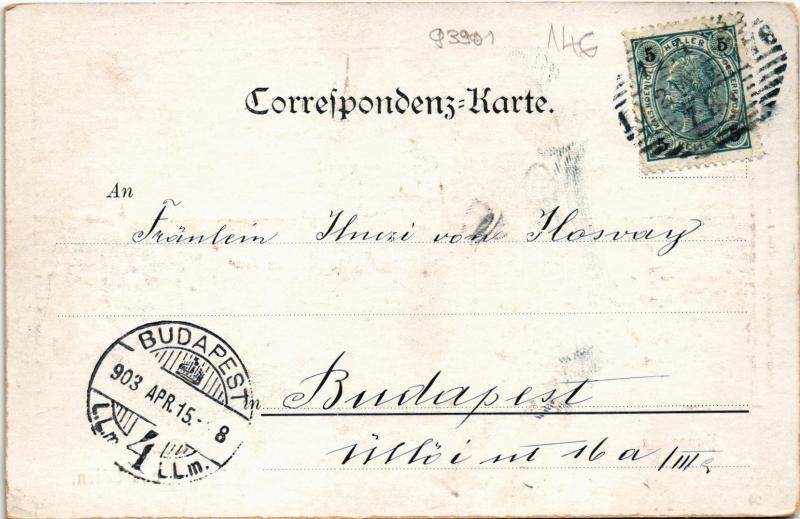 93901 146
5 HELLER 5
5 5
Correſpondenz-Karte.
An
Fräulein von Hosvay
BUDAPEST
903 APR. 15. - 8
4
L.L.m. L.L.m.
in Budapest
Üllői ut 16 a /III